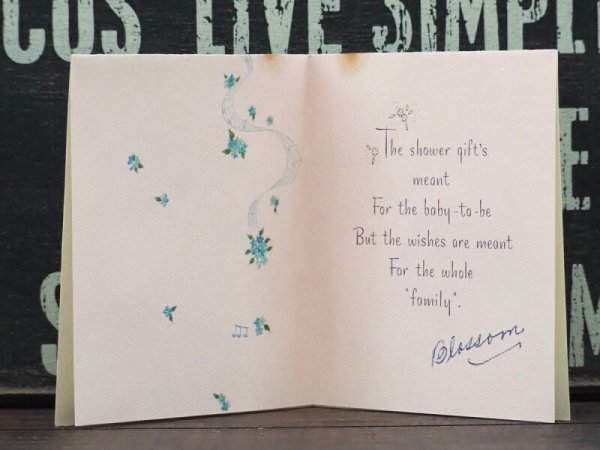 CUS LIVE SIMPL
The shower gift's
meant
For the baby-to-be
But the wishes are meant
For the whole
"family".
Blossom